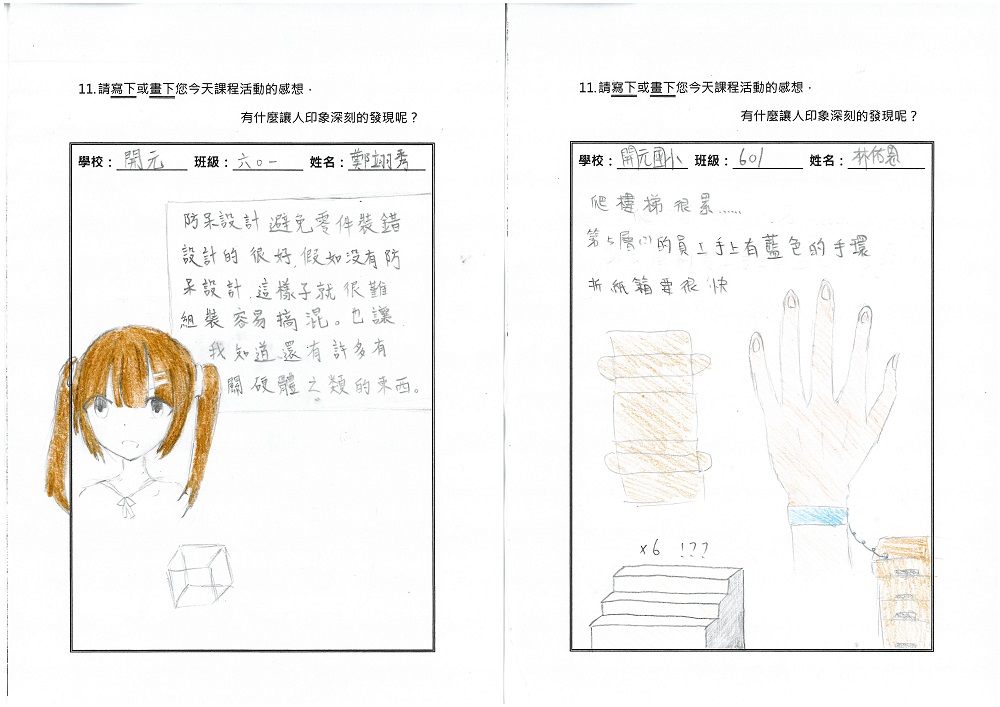 11.請寫下或畫下您今天課程活動的感想，
有什麼讓人印象深刻的發現呢？
學校：開元 班級：六〇一 姓名：鄭翊秀
防呆設計避免零件裝錯
設計的很好，假如沒有防
呆設計，這樣子就很難
組裝容易搞混。也讓
我知道還有許多有
關硬體之類的東西。
11.請寫下或畫下您今天課程活動的感想，
有什麼讓人印象深刻的發現呢？
學校：開元國小 班級：601 姓名：林佑恩
爬樓梯很累......
第5層(?)的員工手上有藍色的手環
折紙箱要很快
x6 !??